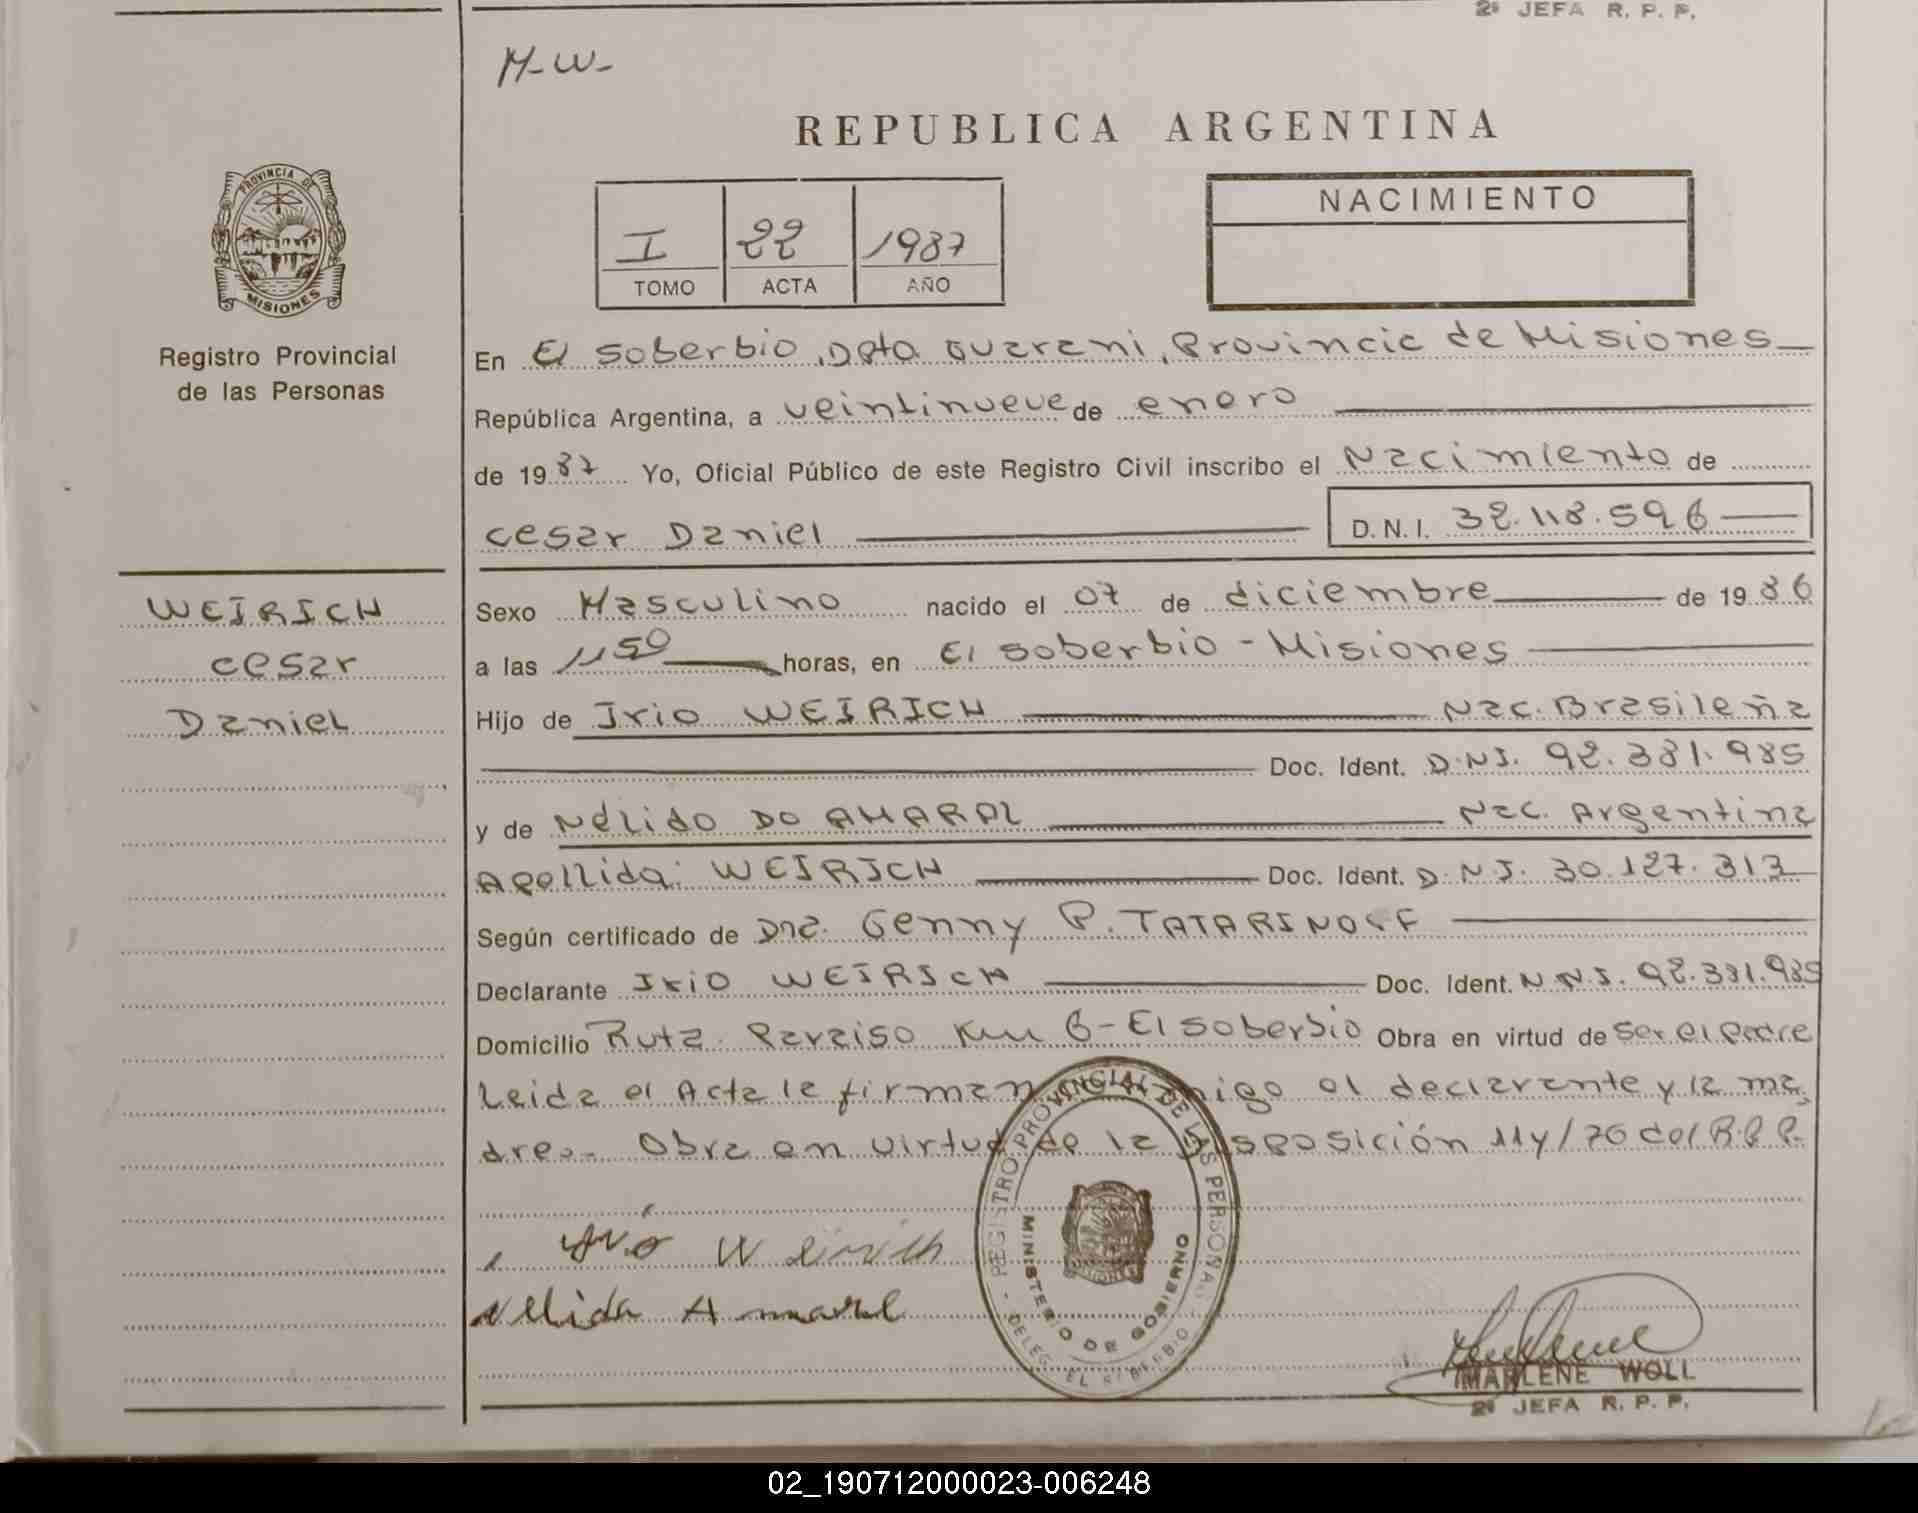 2ª JEFA R. P. P.
M-W-
REPUBLICA ARGENTINA
PROVINCIA DE
MISIONES
Registro Provincial
de las Personas
I 22 1987
TOMO ACTA AÑO
NACIMIENTO
En El Soberbio, Dpto Guarani, Provincia de Misiones
República Argentina, a veintinueve de enero
de 1987 Yo, Oficial Público de este Registro Civil inscribo el Nacimiento de
Cesar Daniel D.N.I. 32.118.596
WEIRICH
Cesar
Daniel
Sexo Masculino nacido el 07 de diciembre de 1986
a las 11 50 horas, en El Soberbio - Misiones
Hijo de Irio WEIRICH Nac. Brasileña
Doc. Ident. D.N.I. 92.381.985
y de Nélida DO AMARAL Nac. Argentina
Apellida: WEIRICH Doc. Ident. D.N.I. 30.127.313
Según certificado de Dra. Genny P. TATARINOFF
Declarante Irio WEIRICH Doc. Ident. 92.381.985
Domicilio Ruta Paraiso Km 6 - El Soberbio Obra en virtud de ser el padre
Leida el Acta la firman conmigo el declarante y la ma
dre.- Obra en virtud de la Disposición 114/76 del R.P.P.
REGISTRO PROVINCIAL DE LAS PERSONAS
MINISTERIO DE GOBIERNO
DELEG. EL SOBERBIO
Irio Weirich
Nelida Amaral
MARLENE WOLL
2ª JEFA R. P. P.
02_190712000023-006248